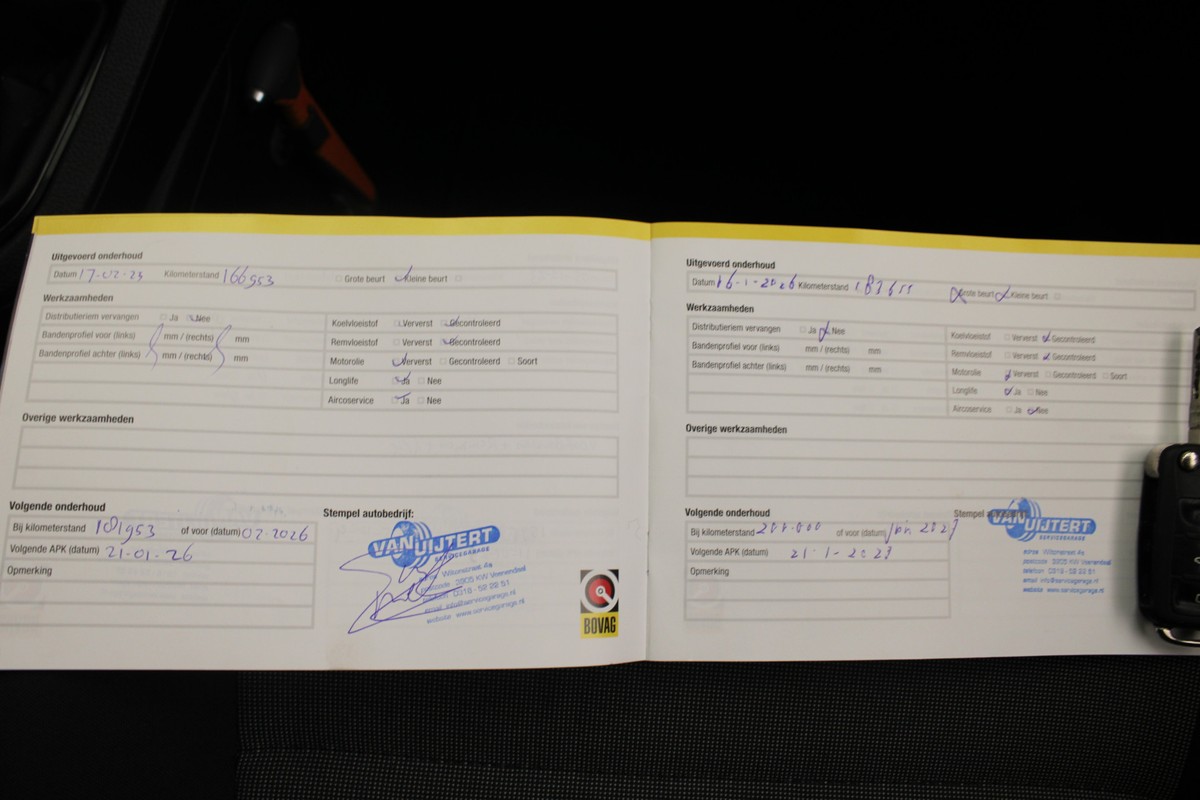 Uitgevoerd onderhoud
Datum 17-02-25 Kilometerstand 166953 Grote beurt Kleine beurt
Werkzaamheden
Distributieriem vervangen Ja Nee
Bandenprofiel voor (links) mm / (rechts) mm
Bandenprofiel achter (links) mm / (rechts) mm
Koelvloeistof Ververst Gecontroleerd
Remvloeistof Ververst Gecontroleerd
Motorolie Ververst Gecontroleerd Soort
Longlife Ja Nee
Aircoservice Ja Nee
Overige werkzaamheden
Volgende onderhoud
Bij kilometerstand 181953 of voor (datum) 02-2026
Volgende APK (datum) 21-01-26
Opmerking
Stempel autobedrijf:
VAN UIJTERT
SERVICEGARAGE
3905 KW Veenendaal
website: www.servicegarage.nl
BOVAG
Uitgevoerd onderhoud
Datum 16-1-2026 Kilometerstand Grote beurt Kleine beurt
Werkzaamheden
Distributieriem vervangen Ja Nee
Bandenprofiel voor (links) mm / (rechts) mm
Bandenprofiel achter (links) mm / (rechts) mm
Koelvloeistof Ververst Gecontroleerd
Remvloeistof Ververst Gecontroleerd
Motorolie Ververst Gecontroleerd Soort
Longlife Ja Nee
Aircoservice Ja Nee
Overige werkzaamheden
Volgende onderhoud
Bij kilometerstand of voor (datum) 2027
Volgende APK (datum) 21-1-202
Opmerking
Stempel
VAN UIJTERT
SERVICEGARAGE
postcode 3905 KW Veenendaal
email info@servicegarage.nl
website www.servicegarage.nl